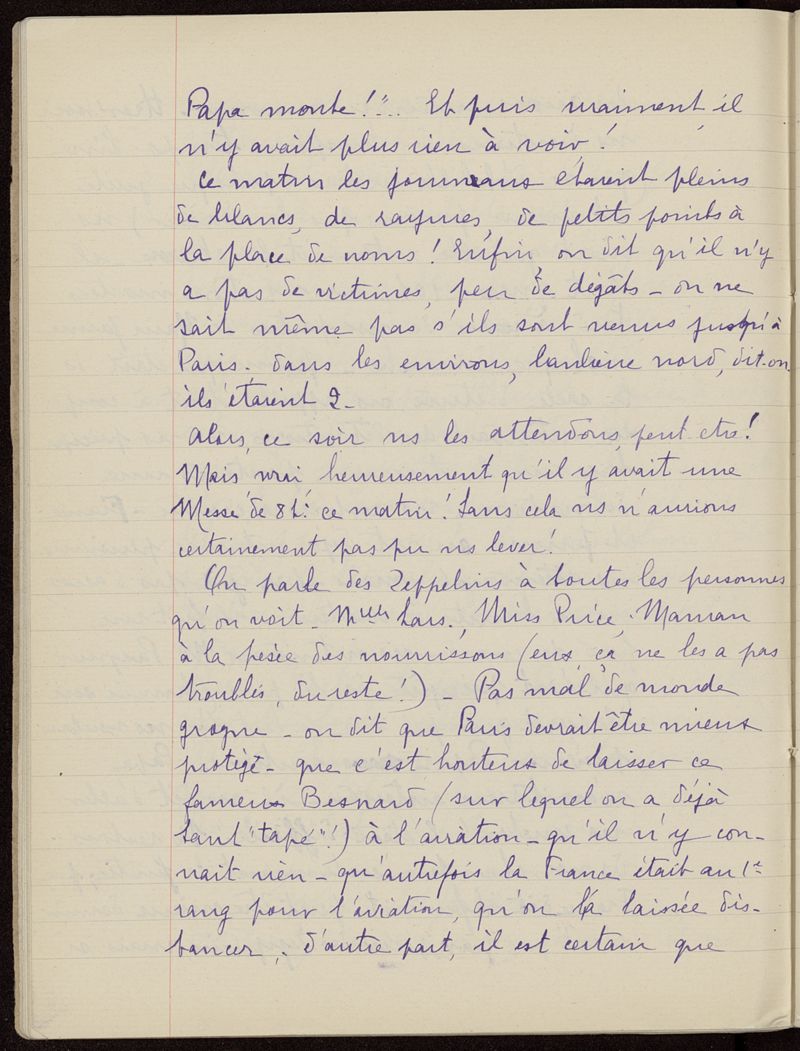 Papa monte!".. Et puis vraiment, il
n'y avait plus rien à voir!
Ce matin les journaux étaient pleins
de blancs, de rayures, de petits points à
la place de noms! Enfin on dit qu'il n'y
a pas de victimes, peu de dégâts - on ne
sait même pas s'ils sont venus jusqu'à
Paris - dans les environs, banlieue nord, dit-on.
ils étaient 2 -
Alors, ce soir ns les attendons, peut etre!
Mais vrai heureusement qu'il y avait une
Messe de 8h. ce matin! Sans cela ns n'aurions
certainement pas pu ns lever!
On parle des Zeppelins à toutes les personnes
qu'on voit - Miss Price, Maman
à la pesée des nourrissons (eux, ça ne les a pas
troublés, du reste!) - Pas mal de monde
grogne - on dit que Paris devrait être mieux
protégé - que c'est honteux de laisser ce
fameux Besnard (sur lequel on a déjà
tant "tapé"!) à l'aviation - qu'il n'y con-
nait rien - qu'autrefois la France était au 1er
rang pour l'aviation, qu'on l'a laissée dis-
tancer, . d'autre part, il est certain que